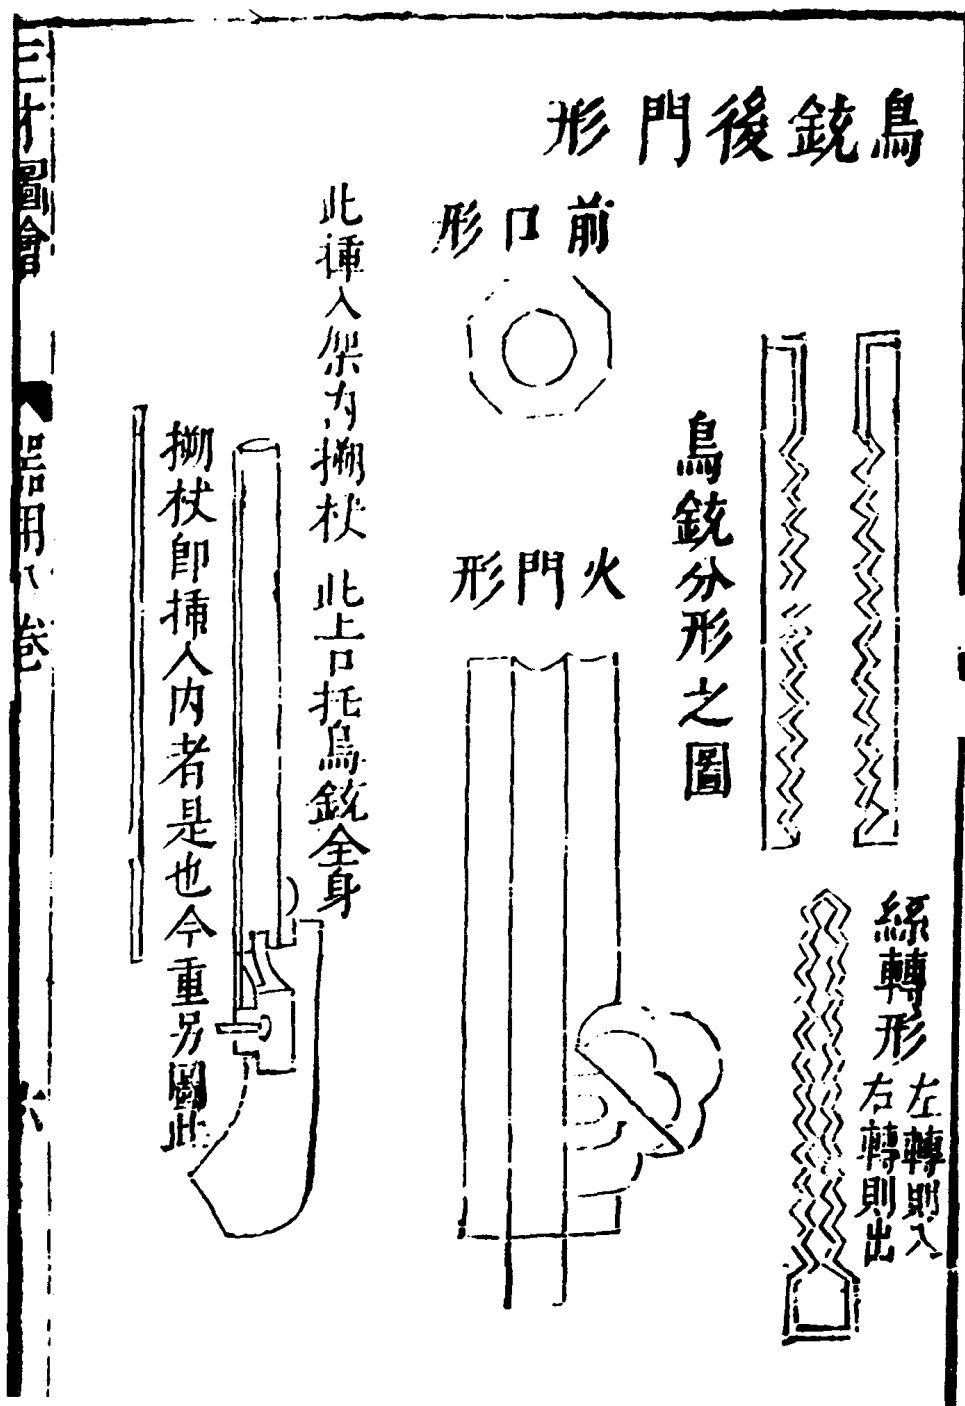 鳥銃後門形
絲轉形
左轉則入
右轉則出
鳥銃分形之圖
前口形
火門形
此揷入架內搠杖
此上口托鳥銃全身
搠杖卽揷入內者是也今重另圖此
三才圖會
器用八卷
六